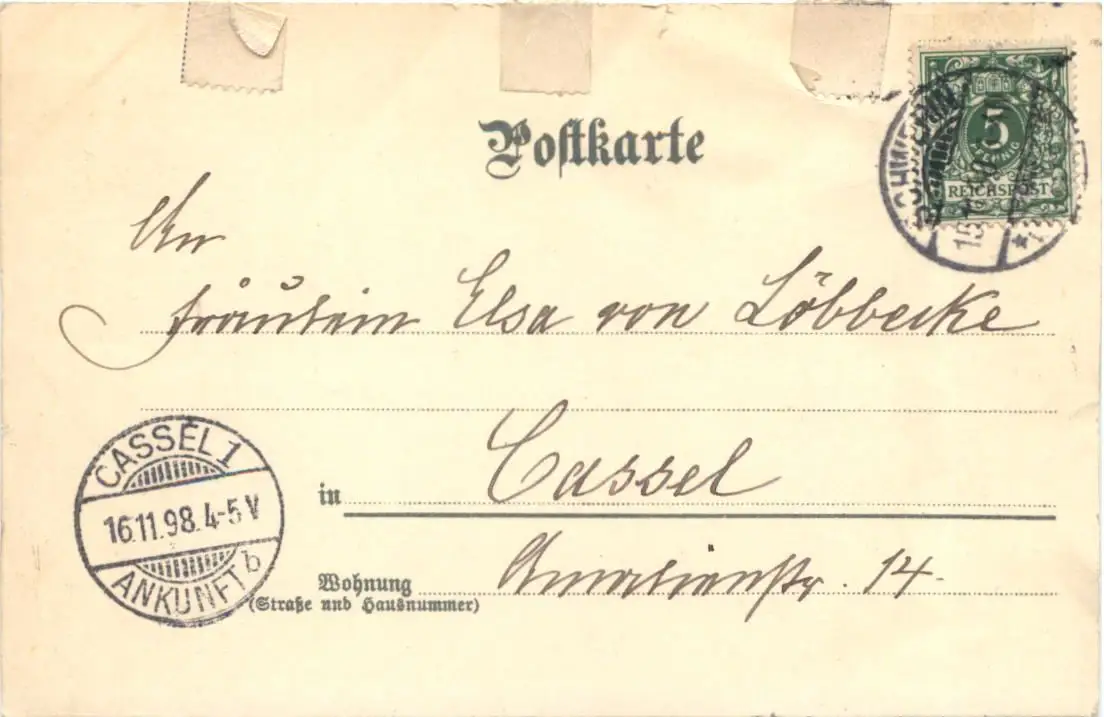 Postkarte
5
PFENNIG
REICHSPOST
SCHWERIN
An
Fräulein Elsa von Löbbecke
in Cassel
Wohnung Amalienstr. 14.
(Straße und Hausnummer)
CASSEL 1
16.11.98. 4-5 V
ANKUNFT b